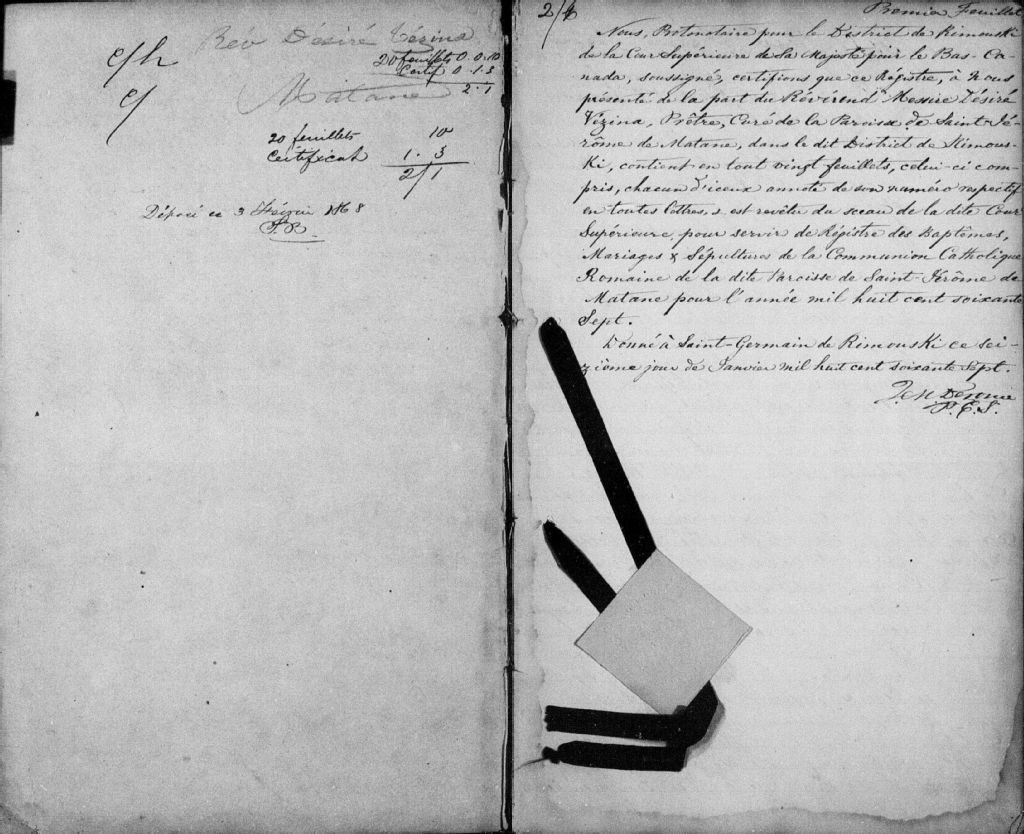 c/h
Rév Désiré Vézina
20 feuillets 0.0.10
Certif 0.1.3
2.1
c/
Matane
20 feuillets 10
Certificat 1.3
2/1
Déposé ce 3 Février 1868
2/6
Premier Feuillet
Nous, Protonotaire pour le District de Rimouski
de la Cour Supérieure de Sa Majesté pour le Bas-Ca-
nada, soussigné, certifions que ce Régistre, à Nous
présenté de la part du Révérend Messire Désiré
Vézina, Prêtre, Curé de la Paroisse de Saint-Jé-
rôme de Matane, dans le dit District de Rimous-
Ki, contient en tout vingt feuillets, celui-ci com-
pris, chacun d'iceux annoté de son numéro respectif
en toutes lettres, & est revêtu du sceau de la dite Cour
Supérieure, pour servir de Régistre des Baptêmes,
Mariages & Sépultures de la Communion Catholique
Romaine de la dite Paroisse de Saint-Jérôme de
Matane pour l'année mil huit cent soixante
Sept.
Donné à Saint-Germain de Rimouski ce sei-
zième jour de Janvier mil huit cent soixante Sept.
P.C.S.